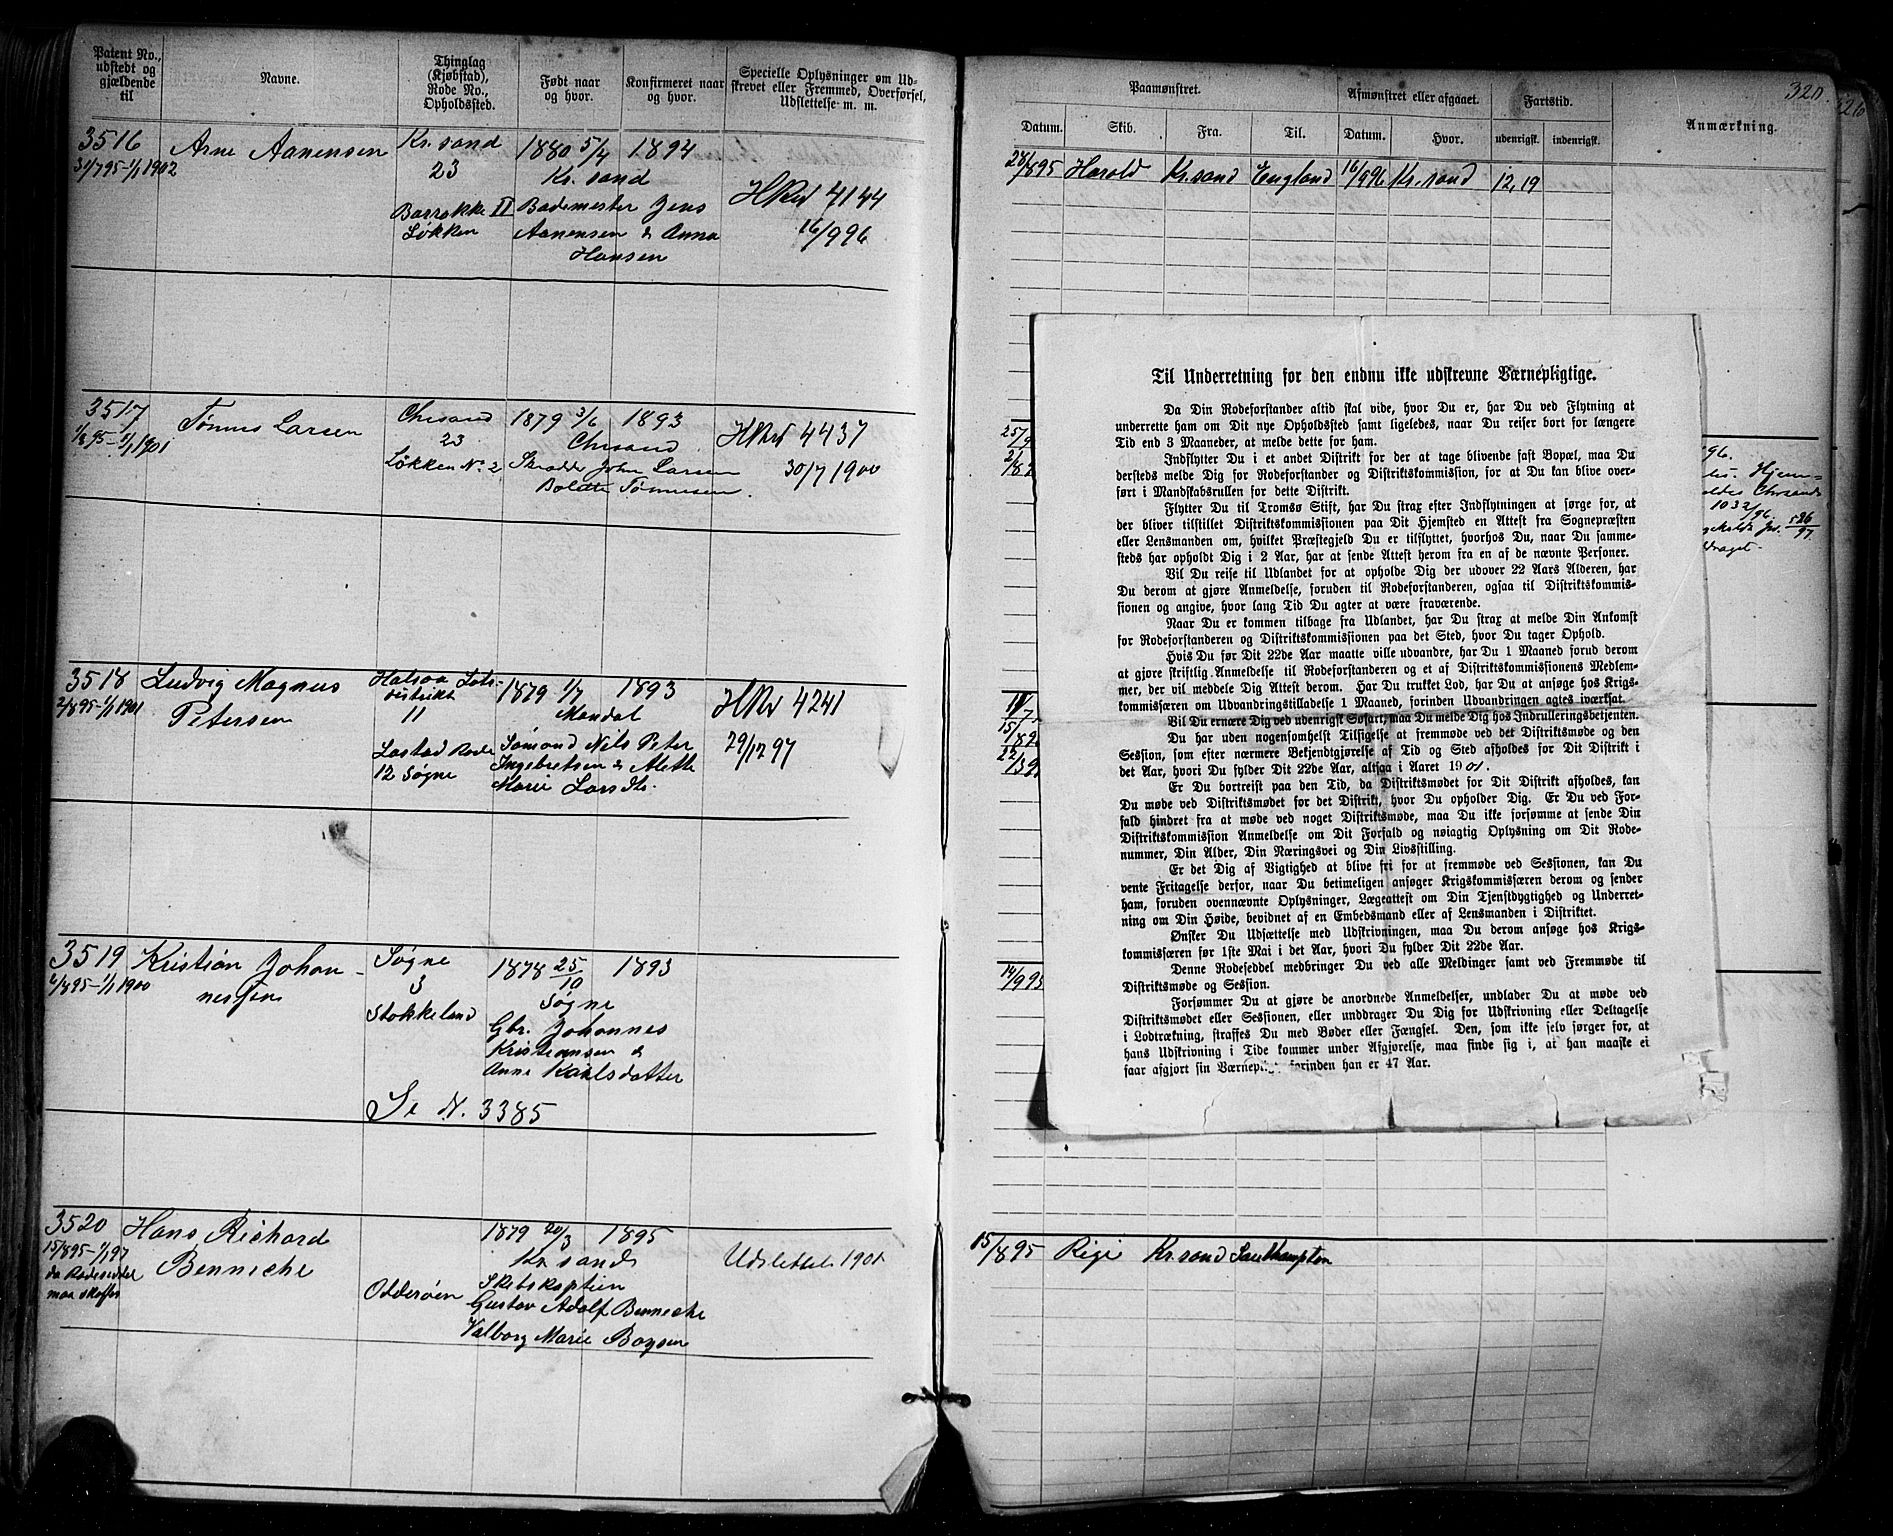 Patent No.,
udstedt og
gjældende
til
Navne.
Thinglag
(Kjøbstad),
Rode No.,
Opholdssted.
Født naar
og hvor.
Konfirmeret naar
og hvor.
Specielle Oplysninger om Ud-
skrevet eller Fremmed, Overførsel,
Udslettelse m. m.
3516
31/7 95–1/1 1902
Arne Aanensen
Kr.sand
23
Barrakke II
Løkken
1880 5/4
Kr. sand
Bademester Jens
Aanensen & Anna
Hansen
1894
HRul 4144
16/9 96
3517
1/8 95–1/1 1901
Tønnes Larsen
Chrsand
23
Løkken No. 2
1879 3/6
Chrsand
Skrædder John Larsen
Bolette Tønnesen.
1893
HRul 4437
30/7 1900
3518
2/8 95–1/1 1901
Ludvig Magnus
Petersen
Halsaa Lods-
distrikt
11
Lastad Rode
12 Søgne
1879 1/7
Mandal
Sømand Nils Peter
Ingebretsen & Alette
Marie Larsdtr.
1893
HRul 4241
29/12 97
3519
6/8 95–1/1 1900
Kristian Johan-
nessen
Søgne
3
Stokkeland
1878 25/10
Søgne
Gbr. Johannes
Kristiansen &
Anne Karlsdatter
1893
Se N. 3385
3520
15/8 95–1/1 97
da Rodeseddel
maa skaffes
Hans Richard
Benneche
Odderøen
1879 20/3
Kr.sand
Skibskaptein
Gustav Adolf Benneche
Valborg Marie Boysen
1895
Udslettet 1901
Paamønstret.
Afmønstret eller afgaaet.
Fartstid.
Anmærkning.
320.
Datum.
Skib.
Fra.
Til.
Datum.
Hvor.
udenrigsk.
indenrigsk.
28/8 95 Harold Kr.sand England 16/9 96 Kr.sand 12,19
Til Underretning for den endnu ikke udskrevne Værnepligtige.
Da Din Rodeforstander altid skal vide, hvor Du er, har Du ved Flytning at
underrette ham om Dit nye Opholdssted samt ligeledes, naar Du reiser bort for længere
Tid end 3 Maaneder, at melde dette for ham.
Indflytter Du i et andet Distrikt for der at tage blivende fast Bopæl, maa Du
dersteds melde Dig for Rodeforstander og Distriktskommission, for at Du kan blive over-
ført i Mandskabsrullen for dette Distrikt.
Flytter Du til Tromsø Stift, har Du strax efter Indflytningen at sørge for, at
der bliver tilstillet Distriktskommissionen paa Dit Hjemsted en Attest fra Sognepræsten
eller Lensmanden om, hvilket Præstegjeld Du er tilflyttet, hvorhos Du, naar Du samme-
steds har opholdt Dig i 2 Aar, har at sende Attest herom fra en af de nævnte Personer.
Vil Du reise til Udlandet for at opholde Dig der udover 22 Aars Alderen, har
Du derom at gjøre Anmeldelse, foruden til Rodeforstanderen, ogsaa til Distriktskommis-
sionen og angive, hvor lang Tid Du agter at være fraværende.
Naar Du er kommen tilbage fra Udlandet, har Du strax at melde Din Ankomst
for Rodeforstanderen og Distriktskommissionen paa det Sted, hvor Du tager Ophold.
Hvis Du før Dit 22de Aar maatte ville udvandre, har Du 1 Maaned forud derom
at gjøre skriftlig Anmeldelse til Rodeforstanderen og et af Distriktskommissionens Medlem-
mer, der vil meddele Dig Attest derom. Har Du trukket Lod, har Du at ansøge hos Krigs-
kommissæren om Udvandringstilladelse 1 Maaned, forinden Udvandringen agtes iværksat.
Vil Du ernære Dig ved udenrigsk Søfart, maa Du melde Dig hos Indrulleringsbetjenten.
Du har uden nogensomhelst Tilsigelse at fremmøde ved det Distriktsmøde og den
Session, som efter nærmere Bekjendtgjørelse af Tid og Sted afholdes for Dit Distrikt i
det Aar, hvori Du fylder Dit 22de Aar, altsaa i Aaret 1901.
Er Du bortreist paa den Tid, da Distriktsmødet for Dit Distrikt afholdes, kan
Du møde ved Distriktsmødet for det Distrikt, hvor Du opholder Dig. Er Du ved For-
fald hindret fra at møde ved noget Distriktsmøde, maa Du ikke forsømme at sende Din
Distriktskommission Anmeldelse om Dit Forfald og nøiagtig Oplysning om Dit Rode-
nummer, Din Alder, Din Næringsvei og Din Livsstilling.
Er det Dig af Vigtighed at blive fri for at fremmøde ved Sessionen, kan Du
vente Fritagelse derfor, naar Du betimeligen ansøger Krigskommissæren derom og sender
ham, foruden ovennævnte Oplysninger, Lægeattest om Din Tjenstdygtighed og Underret-
ning om Din Høide, bevidnet af en Embedsmand eller af Lensmanden i Distriktet.
Ønsker Du Udsættelse med Udskrivningen, maa Du derom ansøge hos Krigs-
kommissæren før 1ste Mai i det Aar, hvori Du fylder Dit 22de Aar.
Denne Rodeseddel medbringer Du ved alle Meldinger samt ved Fremmøde til
Distriktsmøde og Session.
Forsømmer Du at gjøre de anordnede Anmeldelser, undlader Du at møde ved
Distriktsmødet eller Sessionen, eller unddrager Du Dig for Udskrivning eller Deltagelse
i Lodtrækning, straffes Du med Bøder eller Fængsel. Den, som ikke selv sørger for, at
hans Udskrivning i Tide kommer under Afgjørelse, maa finde sig i, at han maaske ei
faar afgjort sin Værnepligt forinden han er 47 Aar.
96.
Hjem-
Chrsands
1032/96.
526/97
draget.
14/9 95
15/8 95 Rigi Kr.sand Southampton